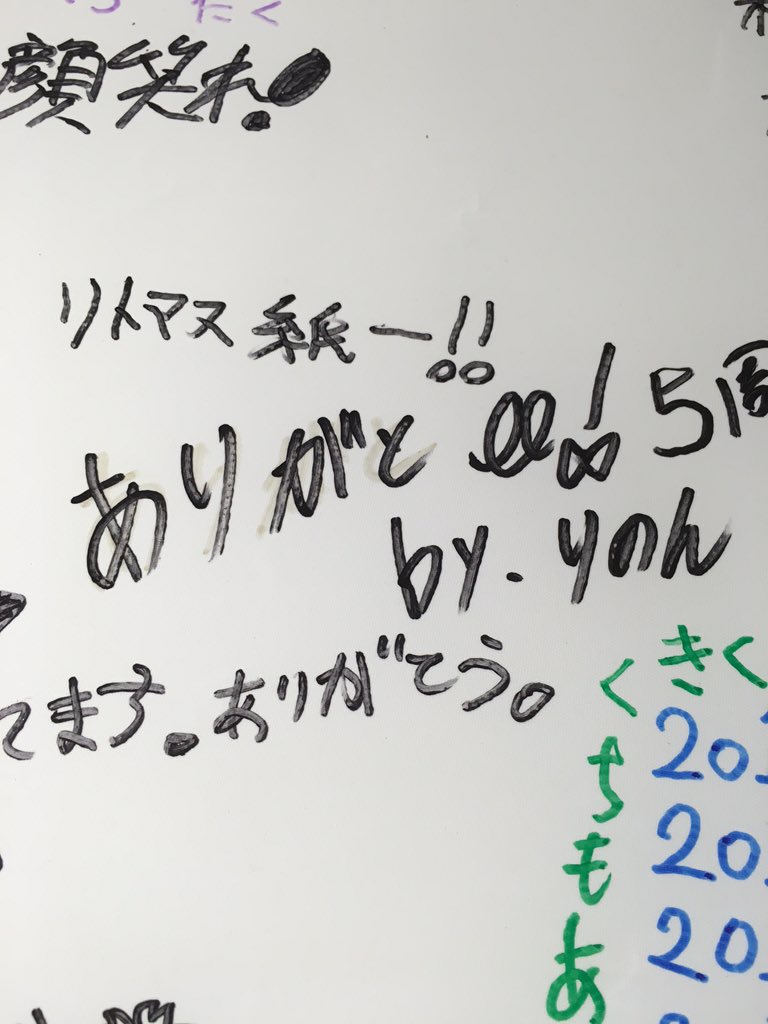 たく
顔笑れ!
リトマス紙ー!!
ありがと ! 5周
by. りのん
てます。ありがとう。
くきく
ち
も
あ
20
20
20